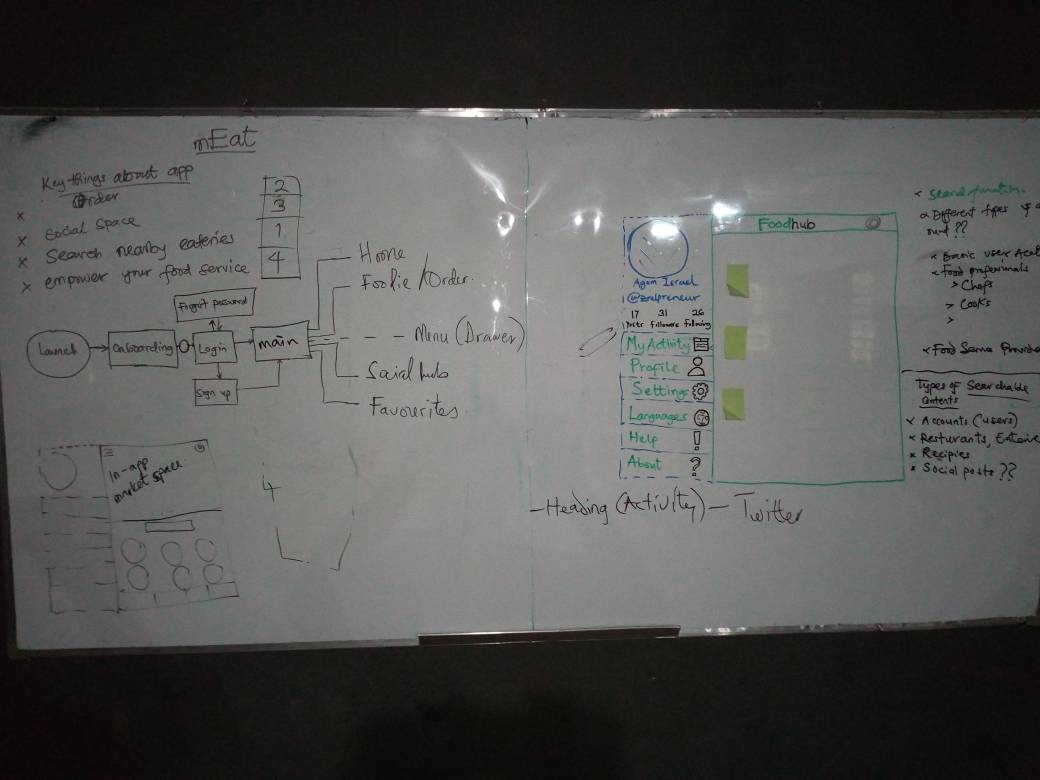 mEat
Key things about app
x Order
x Social space
x Search nearby eateries
x empower your food service
2
3
1
4
Forgot password
Launch
Onboarding
Login
main
Sign up
Home
Foodie/Order
- - - Menu (Drawer)
Social hub
Favourites
In-app
market space
4
Agom Israel
@zralpreneur
17 31 26
Posts Followers Following
My Activity
Profile
Settings
Languages
Help
About
Foodhub
- Heading (Activity) - Twitter
Search function
Different types
??
Basic user
Food
> Chefs
> Cooks
>
Food
Types of Searchable
Contents
Accounts (users)
Resturants,
Recipies
Social posts ??